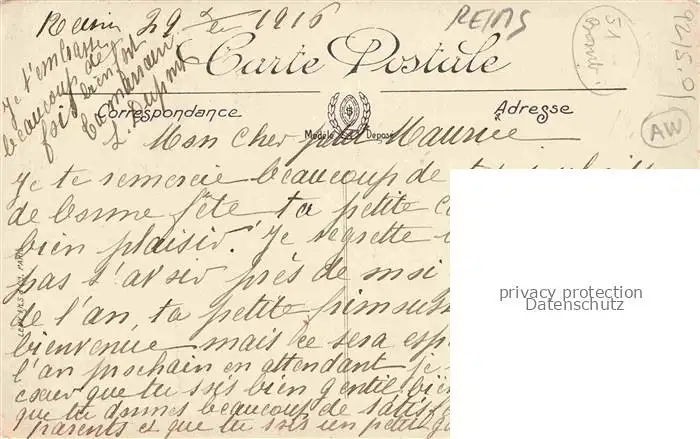 29 1916
REIMS
Carte Postale
Correspondance
Adresse
Modèle Déposé
AW
Je t'embrasse
beaucoup de
fois bien fort
ta maman
L. Dupont
Mon cher petit Maurice
Je te remercie beaucoup de
de bonne fête ta petite
bien plaisir. Je regrette
pas t'avoir près de moi
de l'an, ta petite frimousse
bienvenue mais ce sera
l'an prochain en attendant je
cœur que tu sois bien gentil bien
que tu donnes beaucoup de satisf
parents et que tu sois un petit
privacy protection
Datenschutz